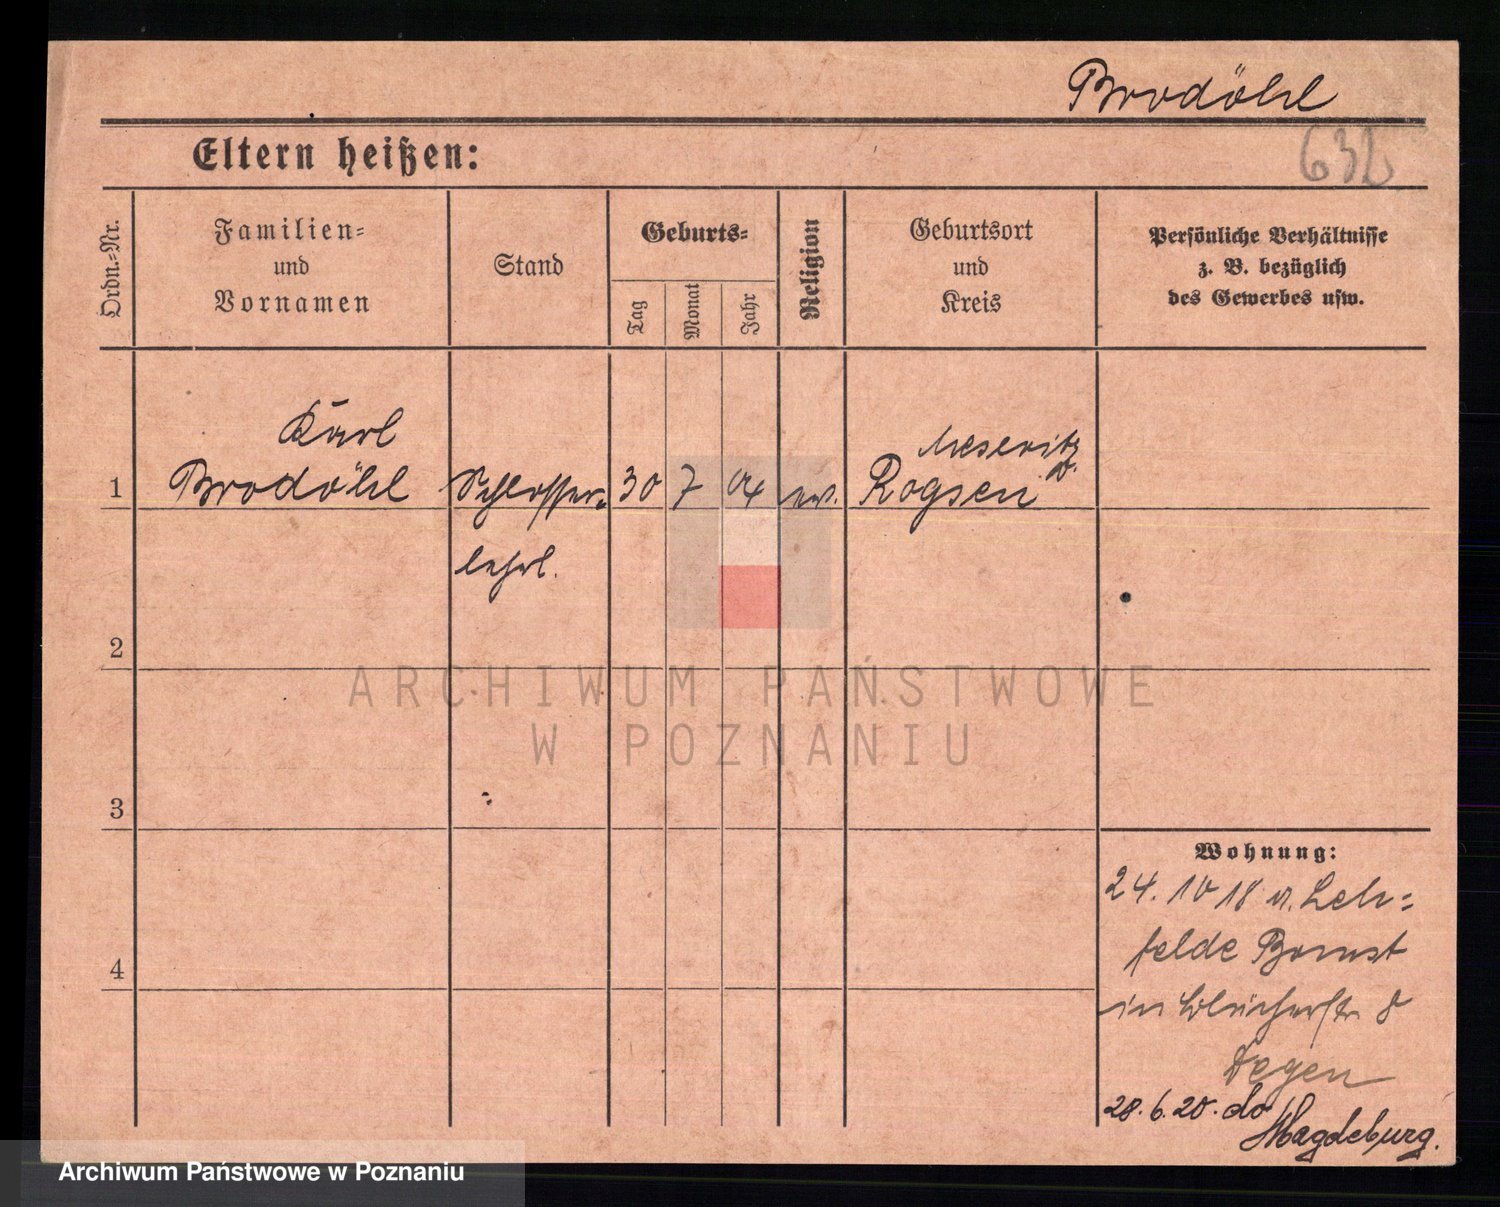 Brodöhl
632
Eltern heißen:
Ordn.-Nr.
Familien-
und
Vornamen
Stand
Geburts-
Tag
Monat
Jahr
Religion
Geburtsort
und
Kreis
Persönliche Verhältnisse
z. B. bezüglich
des Gewerbes usw.
Karl
1 Brodöhl Schlosser- 30 7 04 ev. Rogsen
Meseritz
lehrl.
2
3
4
Wohnung:
24. 10 18 Leh-
felde Bomst
in 8
Degen
28. 6. 20. do
Magdeburg.
ARCHIWUM PAŃSTWOWE
W POZNANIU
Archiwum Państwowe w Poznaniu